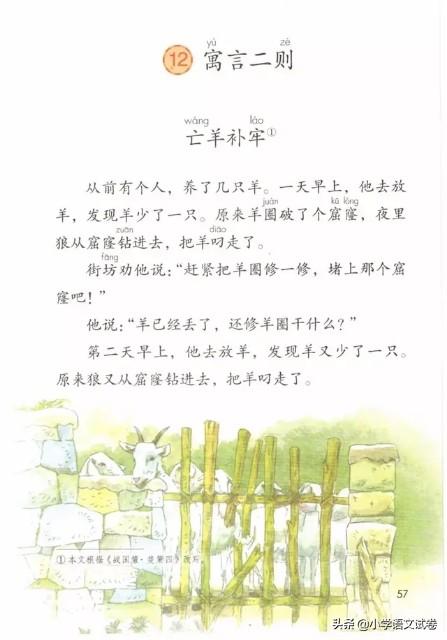 yù zé
12 寓言二则
wáng láo
亡羊补牢①
从前有个人，养了几只羊。一天早上，他去放
juàn kū lóng
羊，发现羊少了一只。原来羊圈破了个窟窿，夜里
zuān diāo
狼从窟窿钻进去，把羊叼走了。
fāng
街坊劝他说：“赶紧把羊圈修一修，堵上那个窟
窿吧！”
他说：“羊已经丢了，还修羊圈干什么？”
第二天早上，他去放羊，发现羊又少了一只。
原来狼又从窟窿钻进去，把羊叼走了。
①本文根据《战国策·楚策四》改写。
57
头条 @小学语文试卷